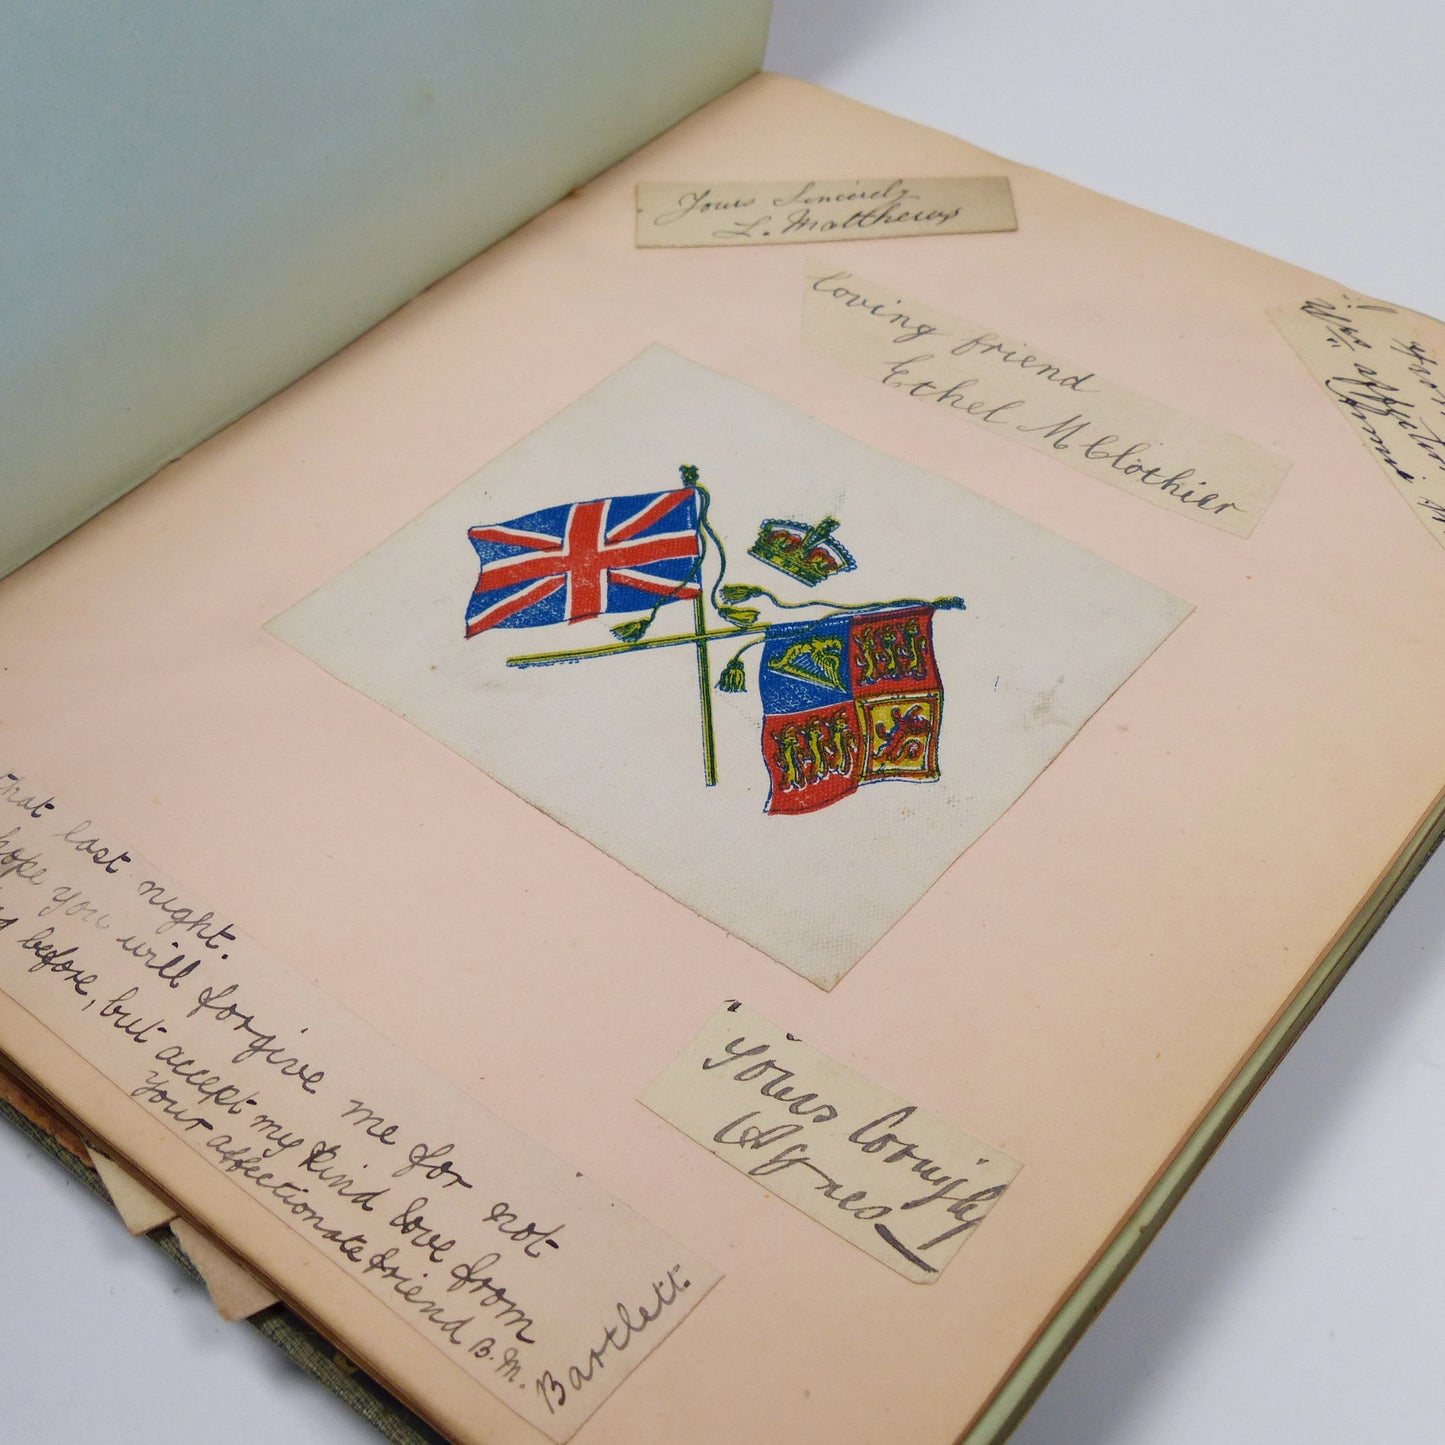 Yours Sincerely
L. Matthews
loving friend
Ethel M Clothier
from
Yrs affection
Annie
that last night.
hope you will forgive me for not
before, but accept my kind love from
Your affectionate friend B. M.
Bartlett.
Yours Cornishly